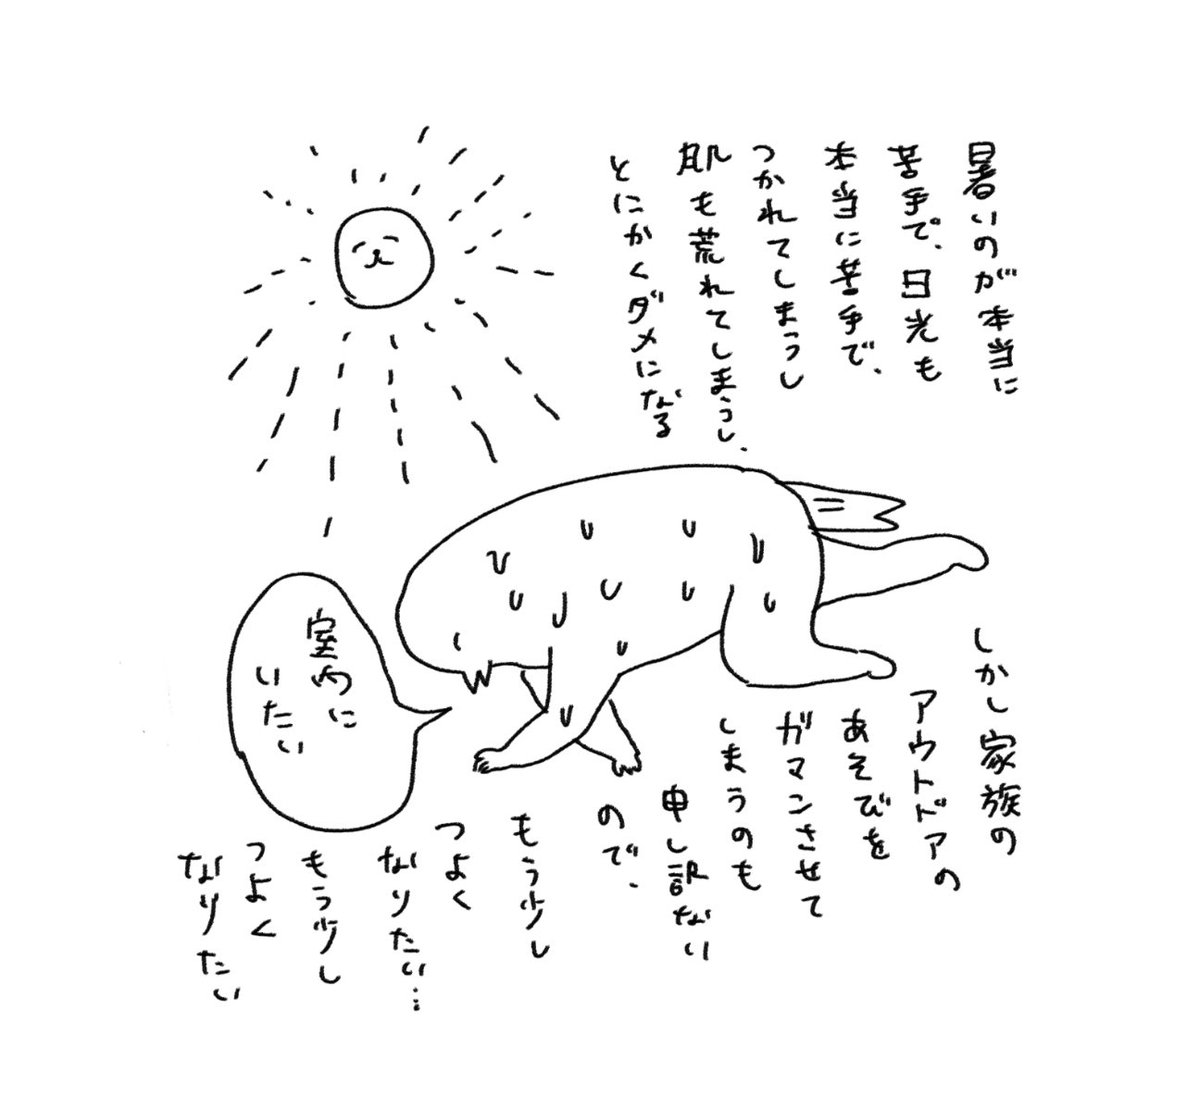 暑いのが本当に
苦手で、日光も
本当に苦手で、
つかれてしまうし
肌も荒れてしまうし、
とにかくダメになる
室内に
いたい
しかし家族の
アウトドアの
あそびを
ガマンさせて
しまうのも
申し訳ない
ので、
もう少し
つよく
なりたい…
もう少し
つよく
なりたい